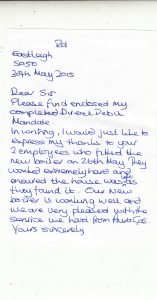 Rd
Eastleigh
SO50
30th May 2015
Dear Sir
Please find enclosed my
completed Direct Debit
Mandate.
In writing, I would just like to
express my thanks to your
2 employees who fitted the
new boiler on 26th May. They
worked extremely hard and
ensured the house was as
they found it. Our New
boiler is working well and
we are very pleased with the
service we had from
Yours sincerely